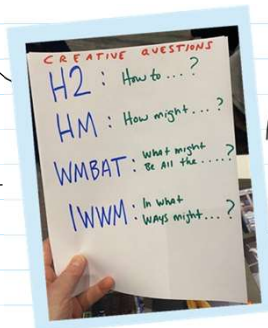 CREATIVE QUESTIONS
H2: How to...?
HM: How might...?
WMBAT: What might
Be All the.....?
IWWM: In what
WAYS might...?